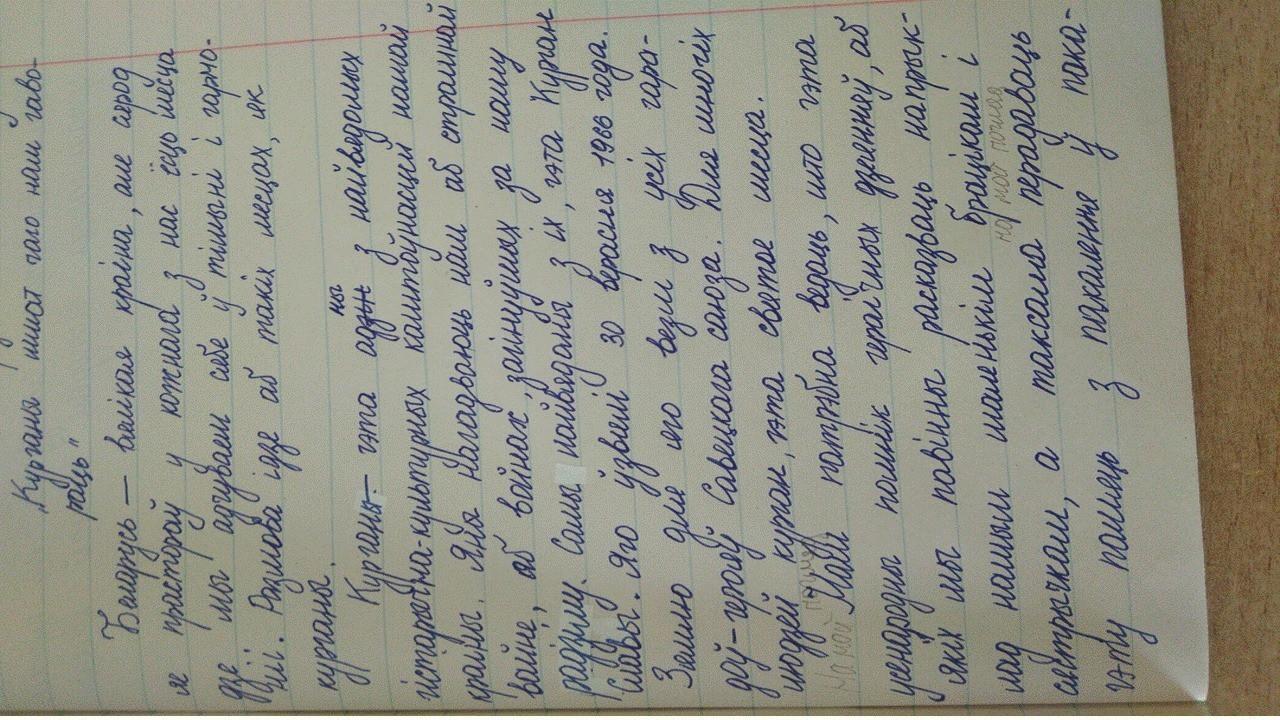 „Кургана шмат чаго нам гаво-
раць"
Беларусь — вялікая краіна, але сярод
яе прастораў у кожнага з нас ёсць месца
дзе мы адчуваем сябе ў цішыні і гармо-
ніі. Размова ідзе аб такіх месцах, як
курганы.
Курганы — гэта адны з найвядомых
гісторыка-культурных каштоўнасцей нашай
краіны. Яны нагадваюць нам аб страшнай
вайне, аб войнах, загінуўшых за нашу
радзіму. Самы найвядомы з іх, гэта Курган
Славы. Яго ўзвялі 30 верасня 1966 года.
Зямлю для яго везлі з усіх гара-
доў-герояў Савецкага саюза. Для многіх
людзей курган, гэта святое месца.
На мой погляд
Маві патрэбна ведаць, што гэта
усенародны помнік гераічных дзеянняў, аб
якіх мы павінны расказваць напрык-
лад нашым маленькім брацікам і
на мой погляд
сястрычкам, а таксама перадаваць
гэту памяць з пакалення ў пака-